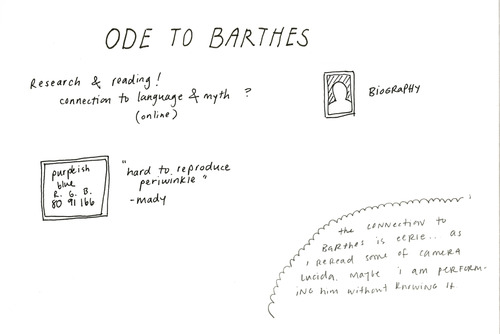 ODE TO BARTHES
Research & reading!
connection to language & myth ?
(online)
BIOGRAPHY
purpleish
blue
R. G. B.
80 91 166
"hard to reproduce
periwinkle"
-mady
the connection to
Barthes is eerie.. as
i reread some of camera
lucida. Maybe i am perform-
ing him without knowing it.